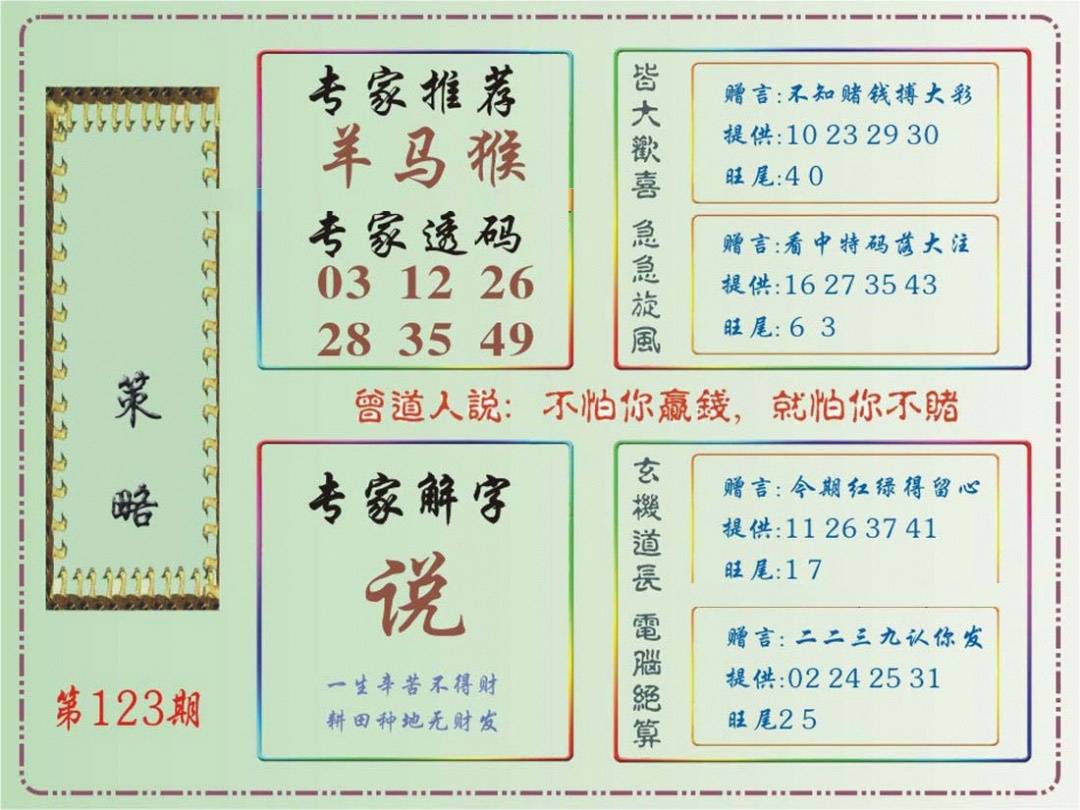 策
略
第123期
专家推荐
羊马猴
专家透码
03 12 26
28 35 49
皆大歡喜
赠言:不知赌钱搏大彩
提供:10 23 29 30
旺尾:4 0
急急旋風
赠言:看中特码落大注
提供:16 27 35 43
旺尾:6 3
曾道人説: 不怕你贏錢, 就怕你不賭
专家解字
说
一生辛苦不得财
耕田种地无财发
玄機道長
赠言: 今期红绿得留心
提供:11 26 37 41
旺尾:1 7
電腦絕算
赠言: 二二三九认你发
提供:02 24 25 31
旺尾2 5